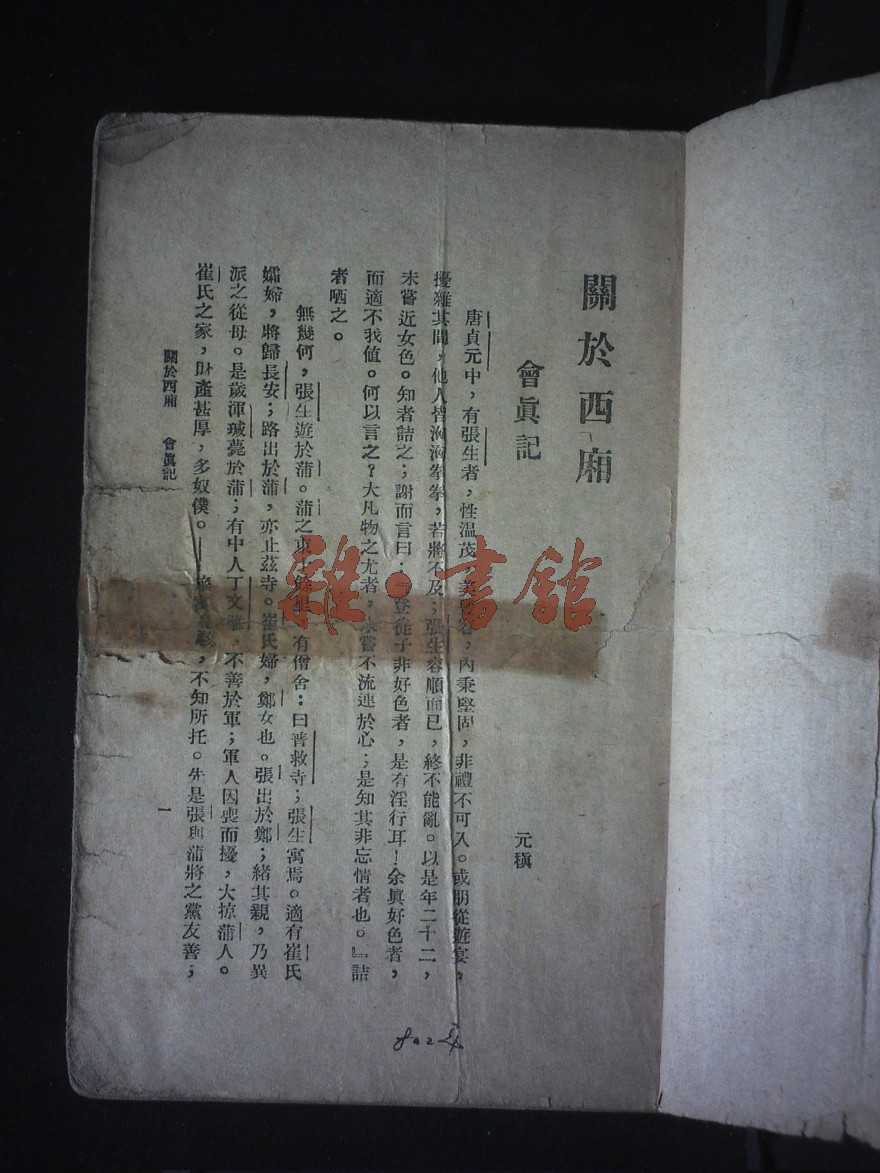 關於西廂
會眞記
元稹
唐貞元中，有張生者，性溫茂，美容，內秉堅固，非禮不可入。或朋從遊宴，
擾雜其間，他人皆洶洶拳拳，若將不及；張生容順而已，終不能亂。以是年二十二，
未嘗近女色。知者詰之；謝而言曰：『登徒子非好色者，是有淫行耳！余眞好色者，
而適不我值。何以言之？大凡物之尤者，未嘗不流連於心；是知其非忘情者也。』詰
者哂之。
無幾何，張生遊於蒲。蒲之東十餘里，有僧舍：曰普救寺；張生寓焉。適有崔氏
孀婦，將歸長安；路出於蒲，亦止茲寺。崔氏婦，鄭女也。張出於鄭；緒其親，乃異
派之從母。是歲渾瑊薨於蒲；有中人丁文雅，不善於軍；軍人因喪而擾，大掠蒲人。
崔氏之家，財產甚厚，多奴僕。，不知所托。先是張與蒲將之黨友善；
關於西廂　會眞記
一
802年
雜·書館